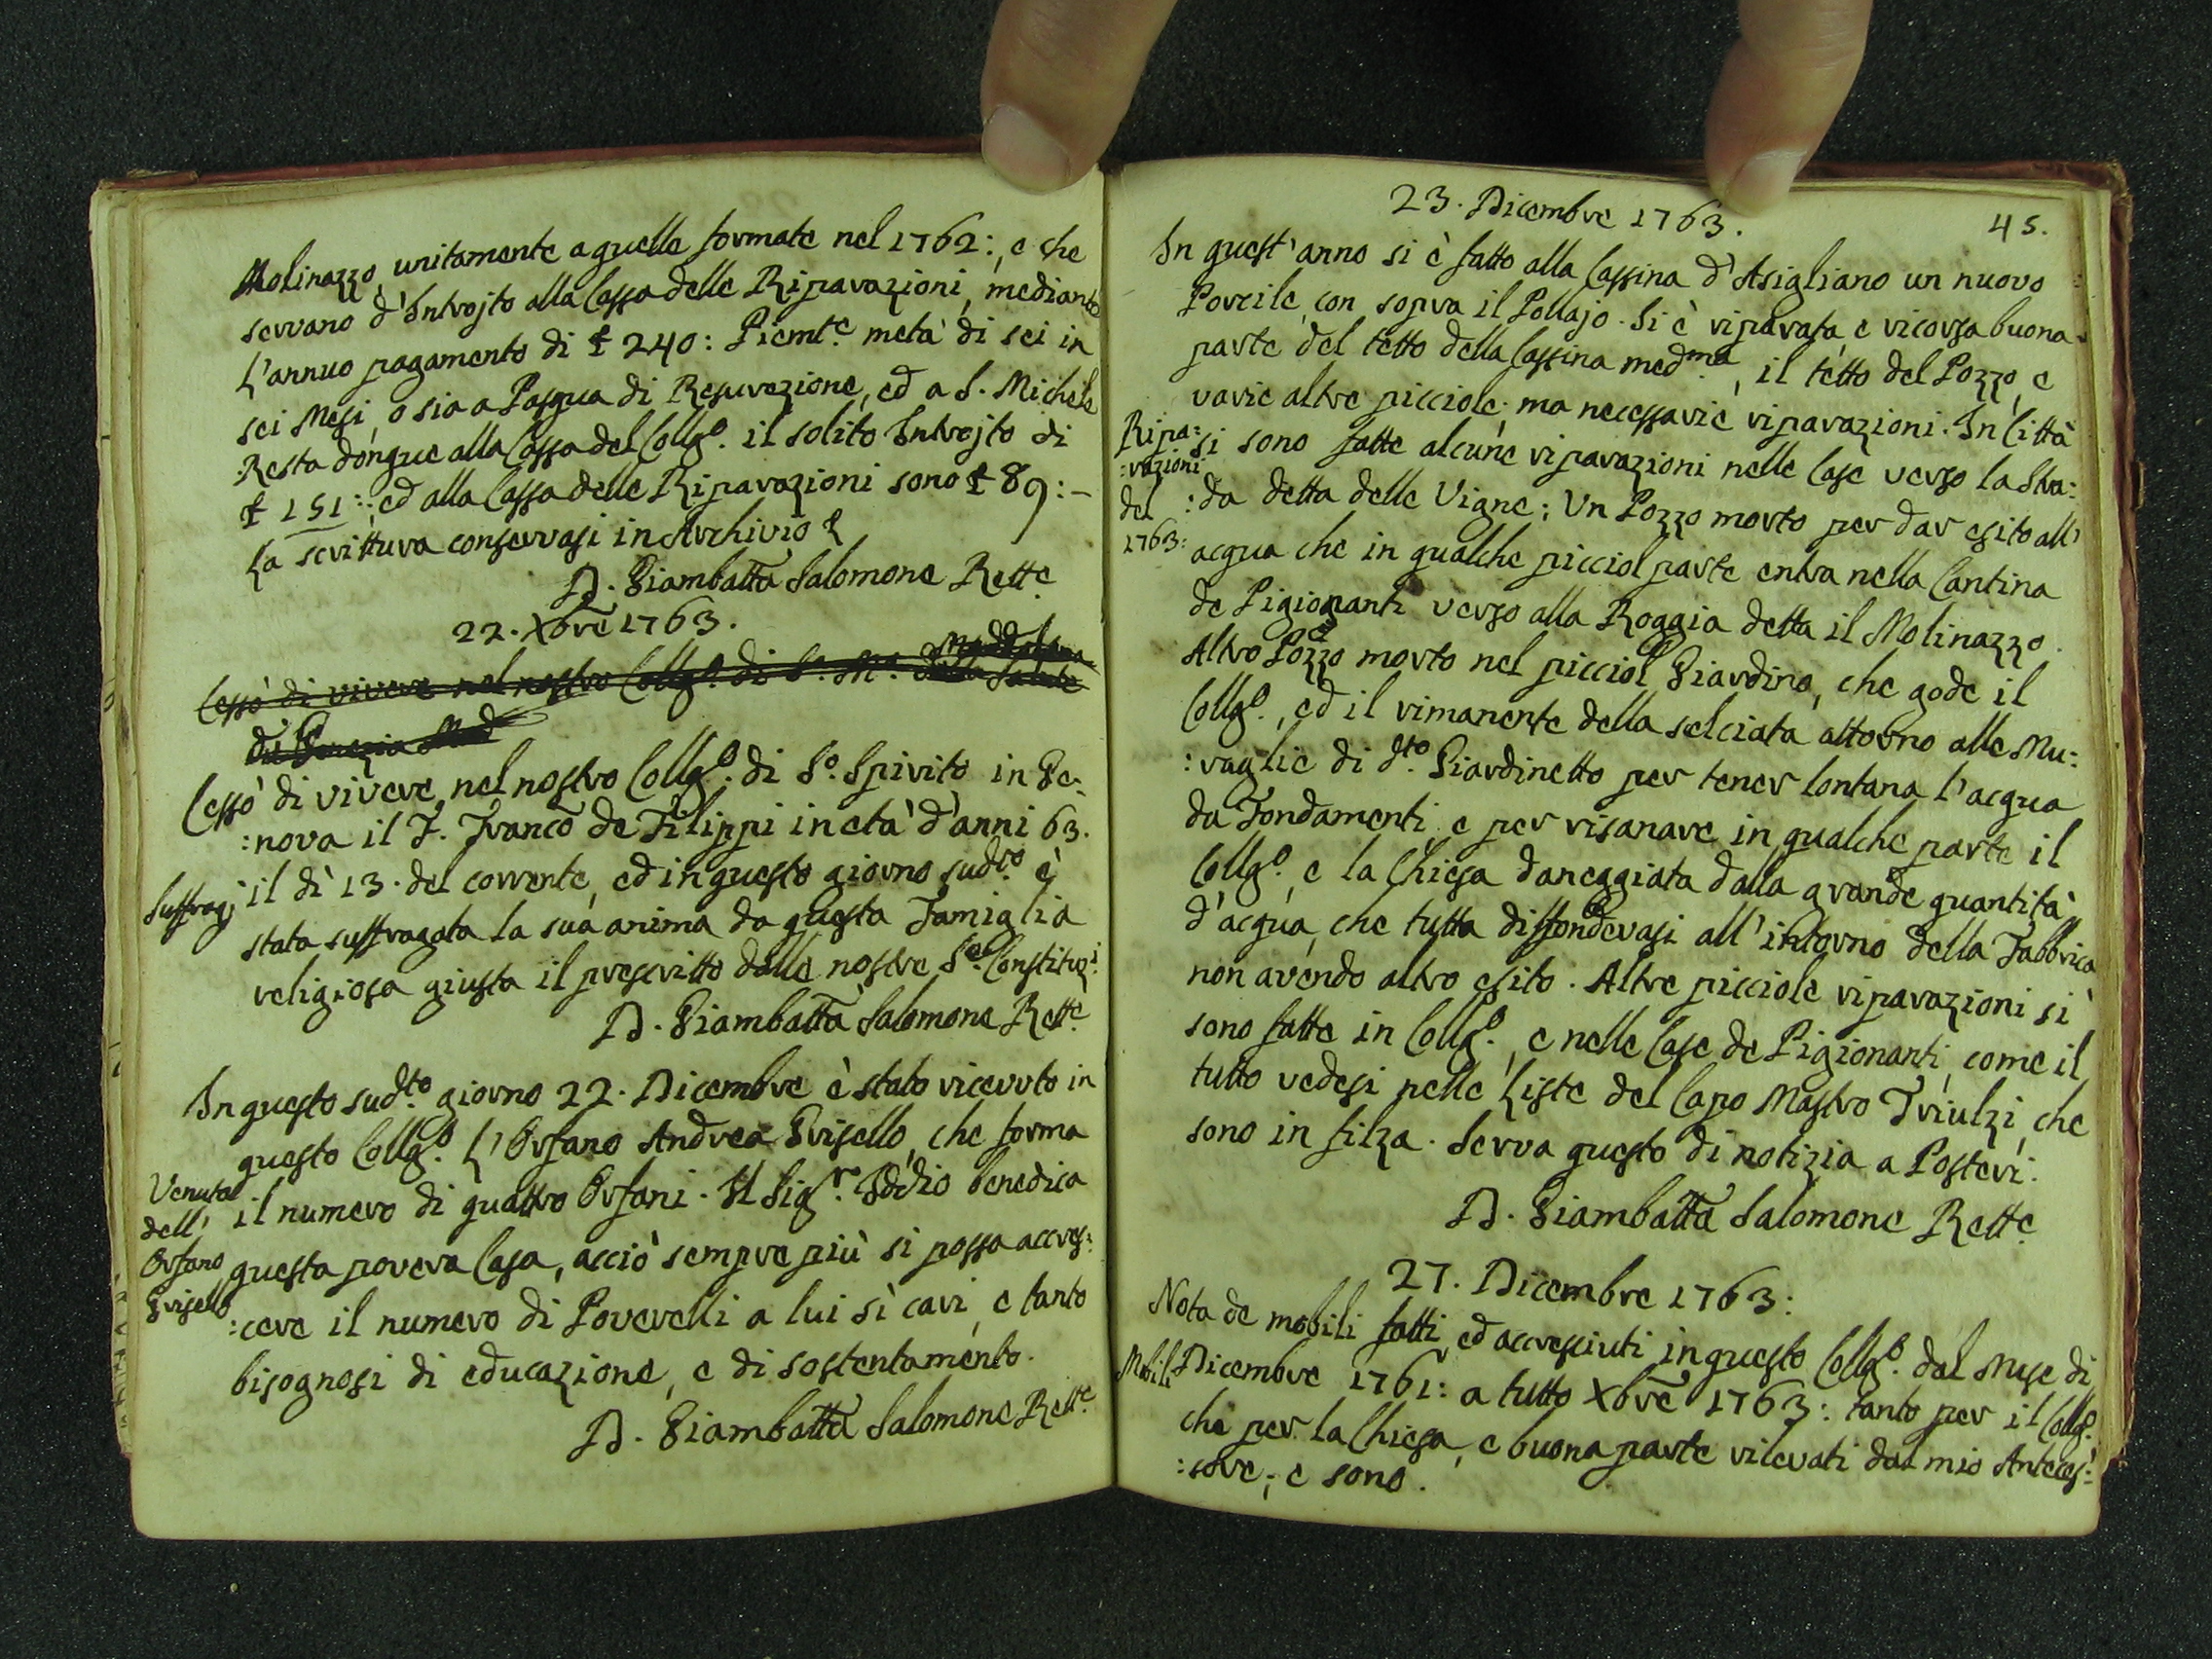 Molinazzo, unitamente a quelle formate nel 1762:, e che
servano d'Introjto alla Cassa delle Riparazioni, mediante
L'annuo pagamento di £ 240: Piemt.e metà di sei in
sei Mesi, o sia a Pasqua di Resurezione, ed a S. Michele
Resta donque alla Cassa del Collg.o il solito Introjto di
£ 151:; ed alla Cassa delle Riparazioni sono £ 89:–
La scrittura conservasi in Archivio &
D. Giambatta Salomone Rett.e
22. Xbre 1763.
Maddalena
Cessò di vivere nel nostro Collg.o di S.a M.a della Salute
di Venezia Mad
Cessò di vivere nel nostro Collg.o di S.o Spirito in Ge:
:nova il F. Franco de Filippi in età d'anni 63.
Suffragj
il dì 13. del corrente, ed in questo giorno sud.ro è
stata suffragata la sua anima da questa Famiglia
religiosa giusta il prescritto dalle nostre S.e Constituz.i
D. Giambatta Salomone Rett.e
In questo sud.to giorno 22. Dicembre è stato ricevuto in
questo Collg.o L'Orfano Andrea Grisello, che forma
Venuta
dell'
Orfano
Grisello
il numero di quattro Orfani. Il Sig.r Iddio benedica
questa povera Casa, acciò sempre più si possa accres:
:cere il numero di Poverelli a lui sì cari, e tanto
bisognosi di educazione, e di sostentamento.
D. Giambatta Salomone Rett.e
23. Dicembre 1763.
45.
In quest'anno si è fatto alla Cassina d'Asigliano un nuovo
Porcile, con sopra il Pollajo. Si è riparata e ricorsa buona
parte del tetto della Cassina med.ma, il tetto del Pozzo, e
varie altre picciole, ma necessarie riparazioni. In Città
Ripa:
:razioni
del
1763:
si sono fatte alcune riparazioni nelle Case verso la Stra:
:da detta delle Vigne; Un Pozzo morto per dar esito all'
acqua che in qualche picciol parte entra nella Cantina
de Pigionanti verso alla Roggia detta il Molinazzo.
Altro Pozzo morto nel picciol Giardino, che gode il
Collg.o, ed il rimanente della selciata attorno alle Mu:
:raglie di d.to Giardinetto per tener lontana l'acqua
da Fondamenti, e per risanare in qualche parte il
Collg.o, e la Chiesa daneggiata dalla grande quantità
d'acqua, che tutta diffondevasi all'intorno della Fabbrica
non avendo altro esito. Altre picciole riparazioni si
sono fatte in Collg.o, e nelle Case de Pigionanti, come il
tutto vedesi nelle Liste del Capo Mastro Triulzi, che
sono in filza. Serva questo di notizia a Posteri.
D. Giambatta Salomone Rett.e
27. Dicembre 1763:
Nota de mobili fatti, ed accresciuti in questo Collg.o dal Mese di
Mobili
Dicembre 1761: a tutto Xbre 1763: tanto per il Collg.o
che per la Chiesa, e buona parte rilevati dal mio Anteces:
:sore; e sono.